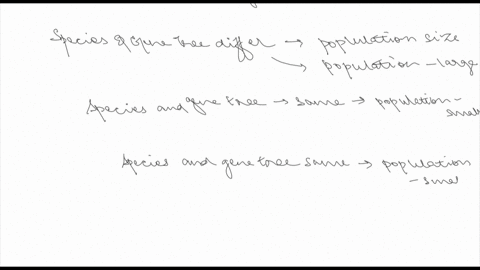 Species & Gene tree differ → population size
→ population - large
Species and gene tree → same → population -
small
Species and gene tree same → population
- smal